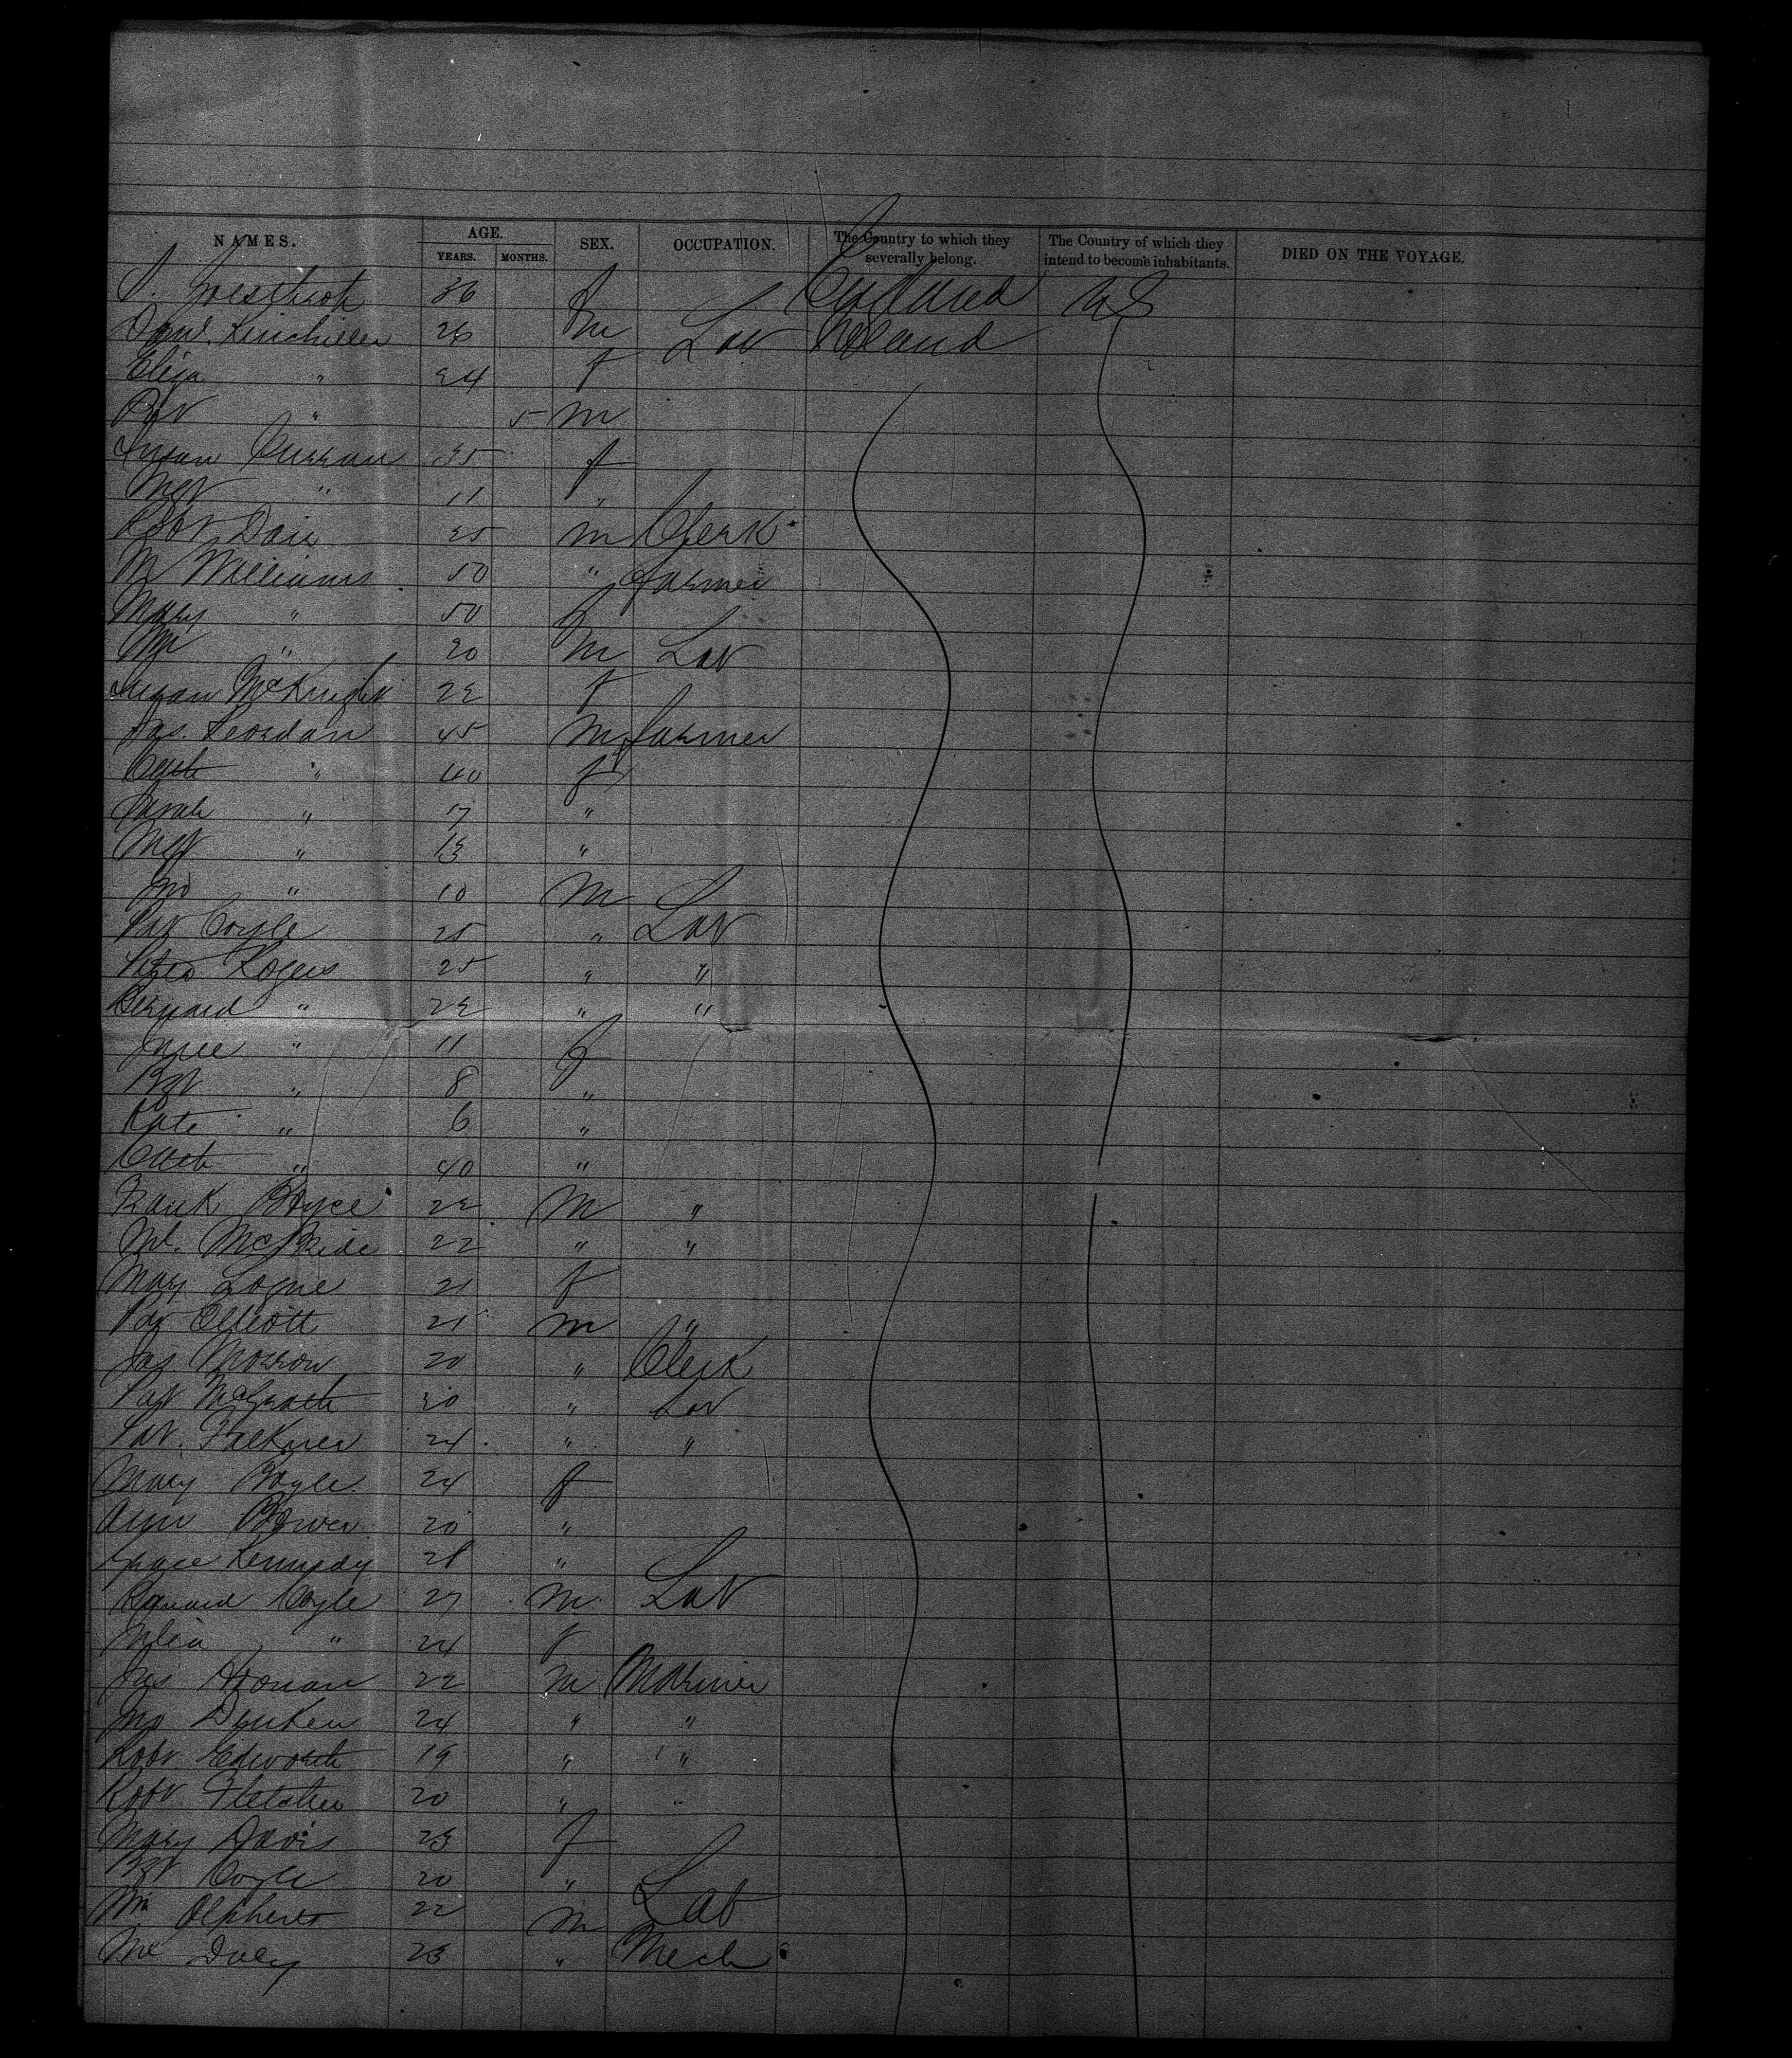 NAMES. AGE. SEX. OCCUPATION. The Country to which they severally belong. The Country of which they intend to become inhabitants. DIED ON THE VOYAGE.
YEARS. MONTHS.
36 f England US
Danl. 26 m Lab Ireland
Eliza " 24 f
" 5 m
Susan Curran 35 f
Mgt " 11 "
Robt 25 m Clerk
M Williams 50 " Farmer
Mary " 50 f
Wm " 20 m Lab
Susan McKnight 22 f
Jas. Reordan 45 m Farmer
Cath " 40 f
Sarah " 17 "
Mgt " 13 "
Jno " 10 m
Pat Coyle 25 " Lab
Rogers 25 " "
Bernard " 22 " "
" 11 f
Bgt " 8 "
Kate " 6 "
Cath " 40 "
Frank Boyce 22 m "
Ml. McBride 22 " "
Mary Logue 21 f
Pat Elliott 21 m "
Jas Morrow 20 " Clerk
Pat McGrath 30 " Lab
Pat. Falkner 24 " "
Mary Boyle 24 f
Ann 20 "
Grace Kennedy 28 "
Bernard Coyle 27 m Lab
Julia " 24 f
Jas 22 m Mariner
Jno 24 " "
Robt. Edworth 19 " "
Robt Fletcher 20 " "
Mary Davis 23 f
Bgt Coyle 20 "
Wm Olpherts 22 m Lab
Ml Daly 23 " Mech